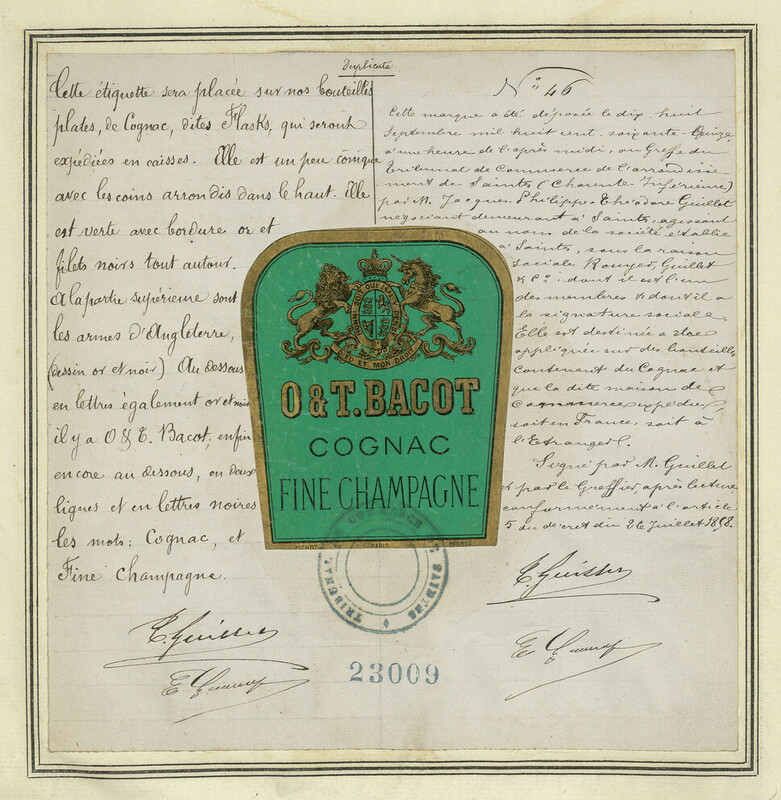 Duplicata
Cette étiquette sera placée sur nos bouteilles
plates, de Cognac, dites Flasks, qui seront
expédiées en caisses. Elle est un peu conique
avec les coins arrondis dans le haut. Elle
est verte avec bordure or et
filets noirs tout autour.
A la partie supérieure sont
les armes d'Angleterre,
(dessin or et noir) Au dessous
en lettres également or et noir
il y a O & T. Bacot, enfin
encore au dessous, en deux
lignes et en lettres noires
les mots: Cognac, et
Fine Champagne.
No. 46
Cette marque a été déposée le dix huit
Septembre mil huit cent soixante-Quinze
à une heure de l'après midi, au Greffe du
Tribunal de Commerce de l'arrondisse-
ment de Saintes (Charente Inférieure)
par M. Jacques Philippe Théodore Guillet
négociant demeurant à Saintes, agissant
au nom de la société établie
à Saintes, sous la raison
sociale Rouyer, Guillet
& Co. dont il est l'un
des membres & dont il a
la signature sociale.
Elle est destinée à être
appliquée sur des bouteilles
contenant du Cognac et
que la dite maison de
Commerce expédie,
soit en France, soit à
l'Etranger.
Signé par M. Guillet
& par le Greffier, après lecture,
conformément à l'article
5 du décret du 26 Juillet 1858.
HONI SOIT QUI MAL Y PENSE
DIEU ET MON DROIT
O & T. BACOT
COGNAC
FINE CHAMPAGNE
PICHOT PARIS DÉPOSÉ
TRIBUNAL DE COMMERCE DE SAINTES
23009